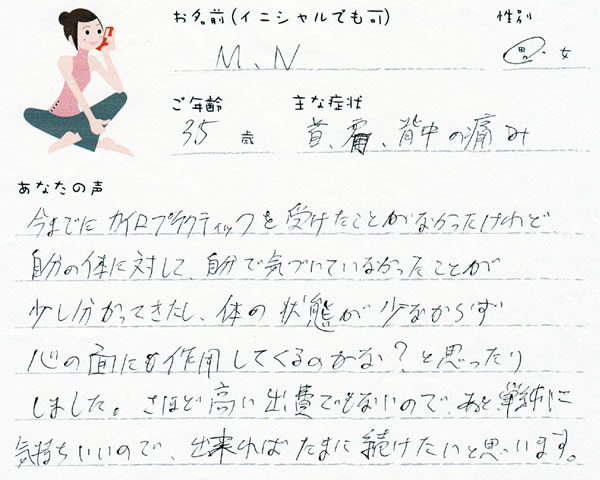 お名前(イニシャルでも可) 性別
M、N 男・女
ご年齢 主な症状
35歳 首、肩、背中の痛み
あなたの声
今までにカイロプラクティックを受けたことがなかったけれど、
自分の体に対して、自分で気づいていなかったことが
少し分かってきたし、体の状態が少なからず
心の面にも作用してくるのかな?と思ったり
しました。さほど高い出費でもないので、あと単純に
気持ちいいので、出来ればたまに続けたいと思います。